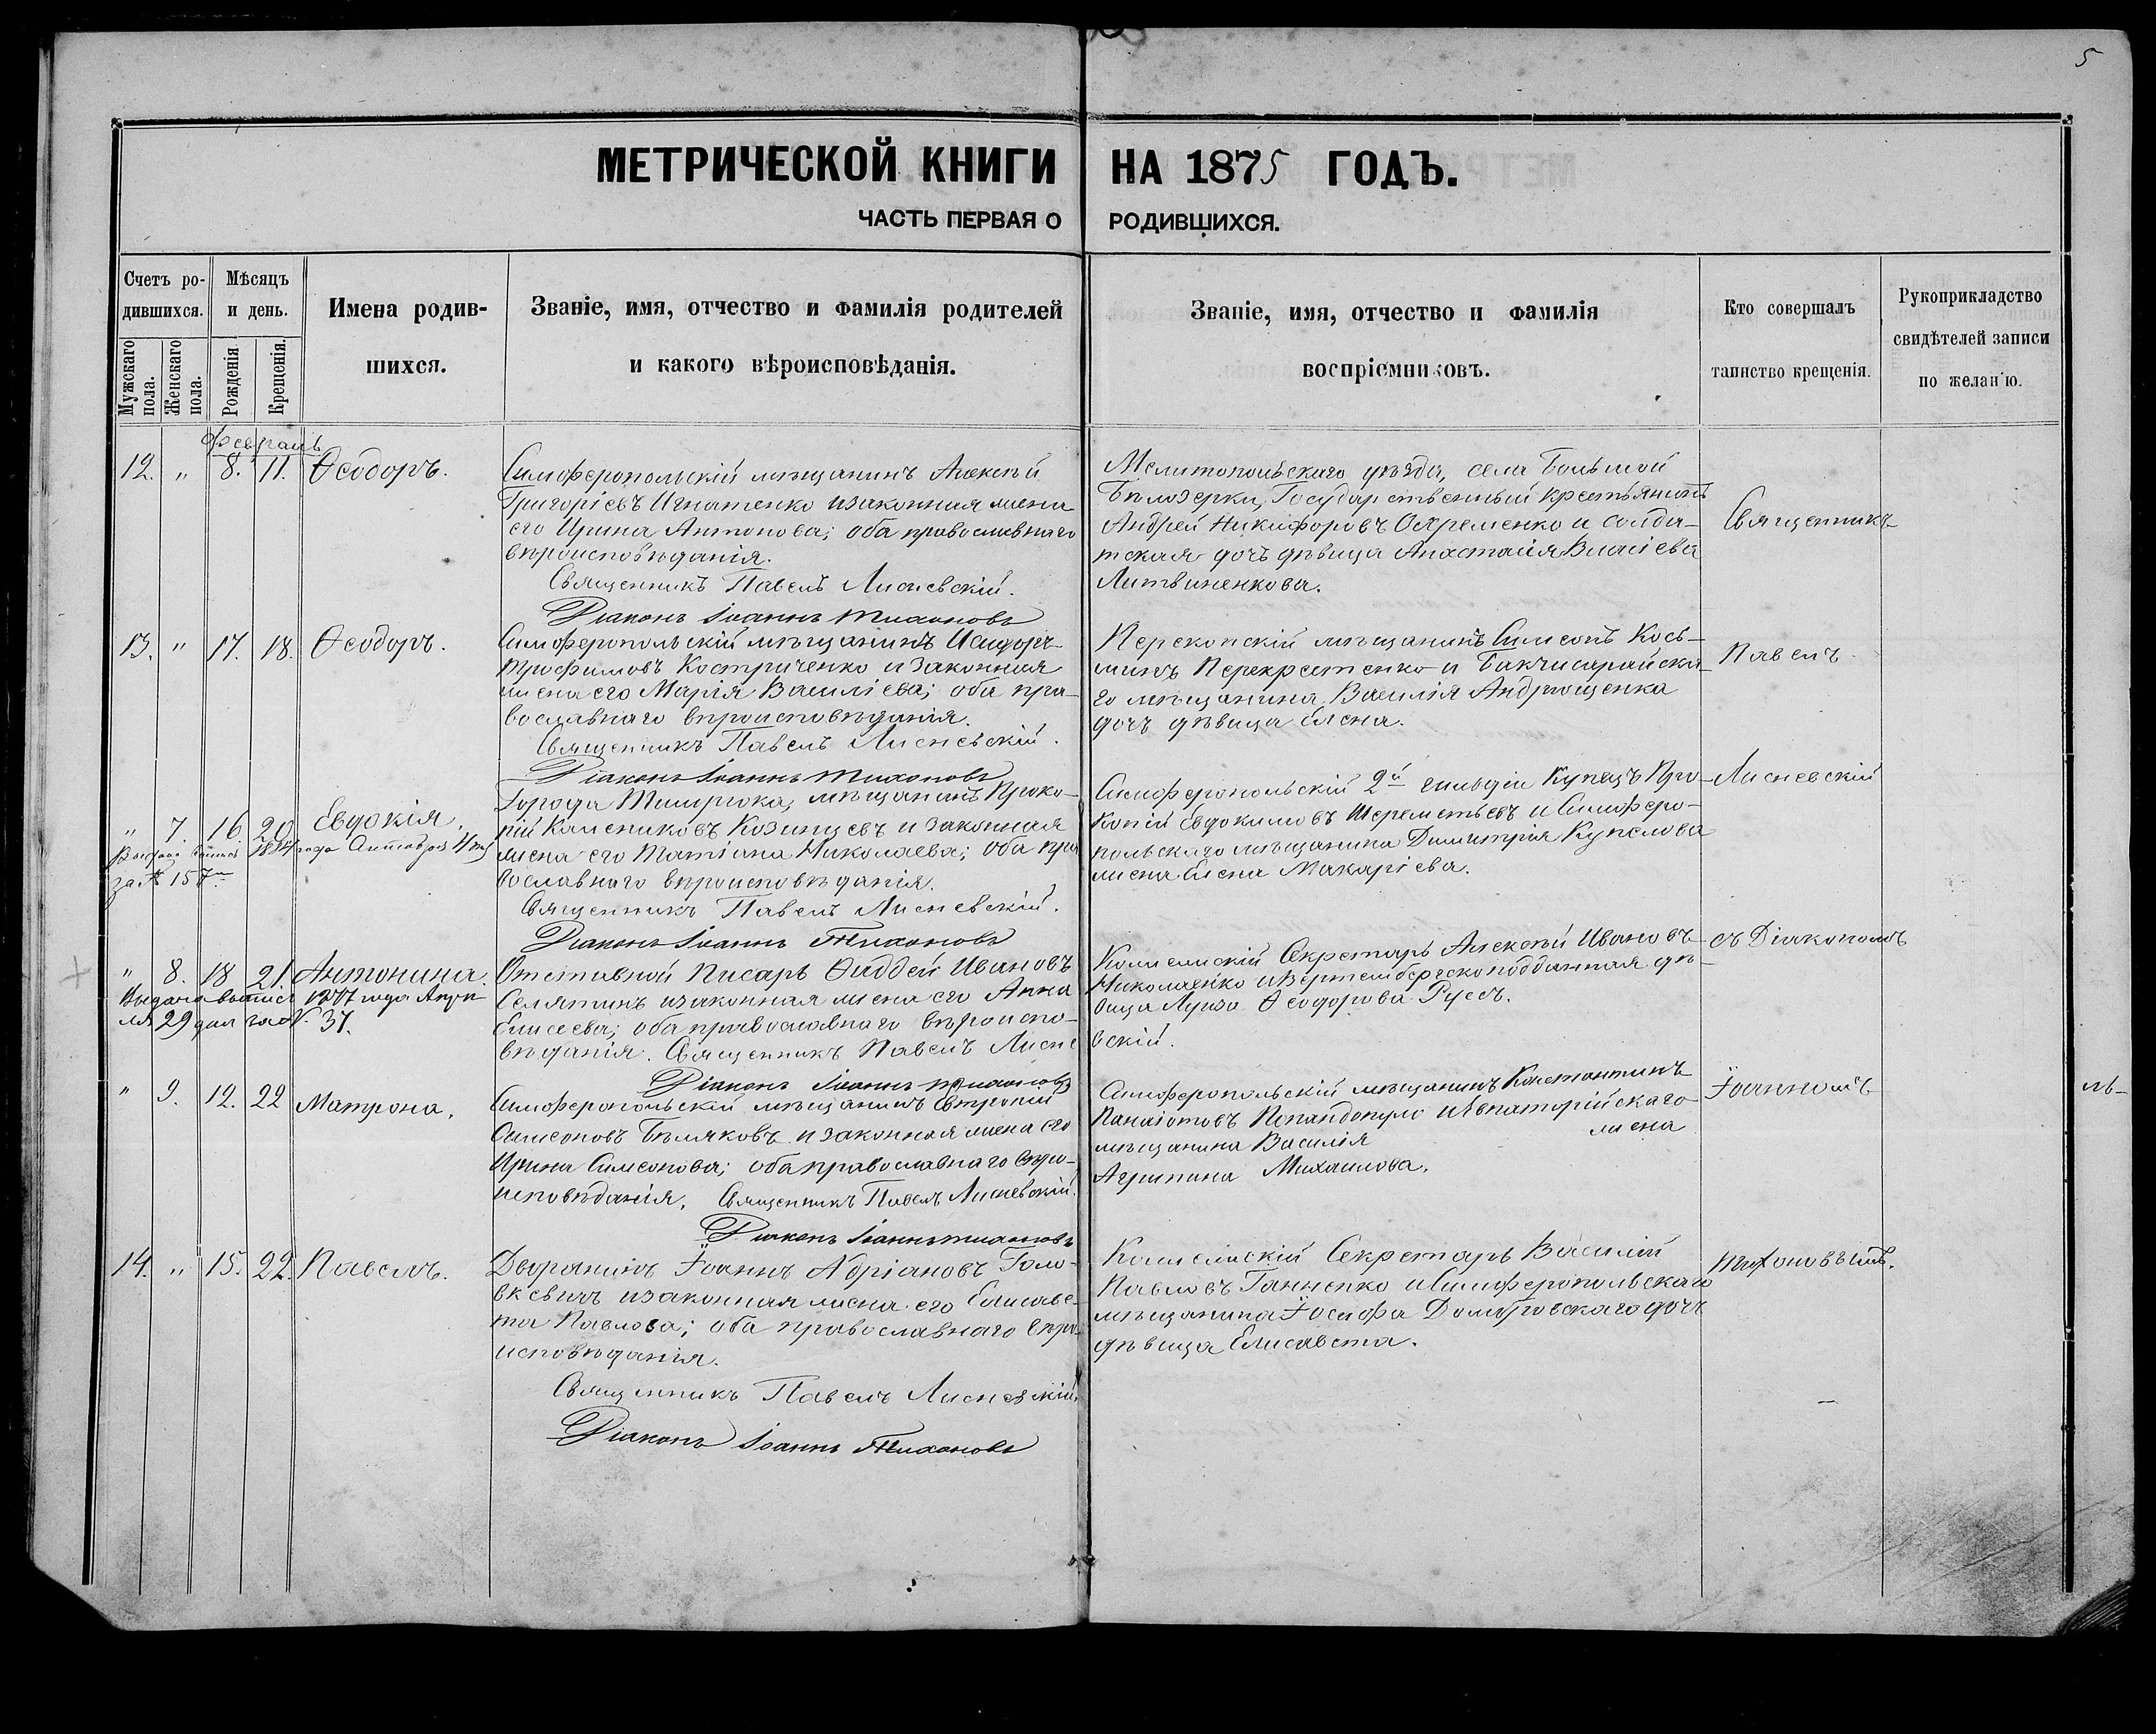 5
МЕТРИЧЕСКОЙ КНИГИ НА 1875 ГОДЪ.
ЧАСТЬ ПЕРВАЯ О РОДИВШИХСЯ.
Счетъ ро-
дившихся.
Мужскаго пола.
Женскаго пола.
Мѣсяцъ
и день.
Рожденія
Крещенія.
Имена родив-
шихся.
Званіе, имя, отчество и фамилія родителей
и какого вѣроисповѣданія.
Званіе, имя, отчество и фамилія
воспріемниковъ.
Кто совершалъ
таинство крещенія.
Рукоприкладство
свидѣтелей записи
по желанію.
Февраль
12. " 8. 11. Ѳеодоръ.
Симферопольскій мѣщанинъ Алексѣй
Григоріевъ Игнатенко и законная жена
его Ирина Антонова; оба православнаго
вѣроисповѣданія.
Священникъ Павелъ Лисневскій.
Діаконъ Іоаннъ Тихоновъ
Мелитопольскаго уѣзда, села Большой
Бѣлозерки, Государственный крестьянинъ
Андрей Никифоровъ Охременко и солда-
тская дочь дѣвица Анастасія Власіева
Литвиненкова.
Священникъ
13. " 17. 18. Ѳеодоръ.
Симферопольскій мѣщанинъ Исидоръ
Трофимовъ Костриченко и законная
жена его Марія Василіева; оба пра-
вославнаго вѣроисповѣданія.
Священникъ Павелъ Лисневскій.
Діаконъ Іоаннъ Тихоновъ
Перекопскій мѣщанинъ Симеонъ Кось-
минъ Перекрестенко и Бакчисарайска-
го мѣщанина Василія Андрющенка
дочь дѣвица Елена.
Павелъ
" 7. 16 20 Евдокія.
1884 года Октября
за № 157
Города Темрюка, мѣщанинъ Проко-
пій Калениковъ Козинцевъ и законная
жена его Татіана Николаева; оба пра
вославнаго вѣроисповѣданія.
Священникъ Павелъ Лисневскій.
Діаконъ Іоаннъ Тихоновъ
Симферопольскій 2й гильдіи Купецъ Про-
копій Евдокимовъ Шереметьевъ и Симферо-
польскаго мѣщанина Димитрія Купелова
жена Елена Макаріева.
Лисневскій
" 8. 18 21. Антонина.
Выдана выпись 1877 года Апрѣ-
ля 29 дня за № 37.
Отставной Писарь Ѳаддей Ивановъ
Селятинъ и законная жена его Анна
Елисеева; оба православнаго вѣроиспо-
вѣданія. Священникъ Павелъ Лисне
вскій.
Діаконъ Іоаннъ Тихоновъ
Коллежскій Секретарь Алексѣй Ивановъ
Николаенко и Вертембергскоподданная дѣ-
вица Луиза Ѳеодорова Руссъ.
съ Діакономъ
" 9. 12. 22 Матрона.
Симферопольскій мѣщанинъ Евтропій
Симеоновъ Бѣляковъ и законная жена его
Ирина Симеонова; оба православнаго вѣро-
исповѣданія. Священникъ Павелъ Лисневскій.
Діаконъ Іоаннъ Тихоновъ
Симферопольскій мѣщанинъ Константинъ
Панаіотовъ Попандопуло и Евпаторійскаго
мѣщанина Василія жена
Агрипина Михаилова.
Іоанномъ
14. " 15. 22. Павелъ.
Дворянинъ Іоаннъ Адріановъ Голо-
вкевичъ и законная жена его Елисаве-
та Павлова; оба православнаго вѣро-
исповѣданія.
Священникъ Павелъ Лисневскій.
Діаконъ Іоаннъ Тихоновъ
Коллежскій Секретарь Василій
Павловъ Ганненко и Симферопольскаго
мѣщанина Іосифа Домбровскаго дочь
дѣвица Елисавета.
Тихоновымъ.